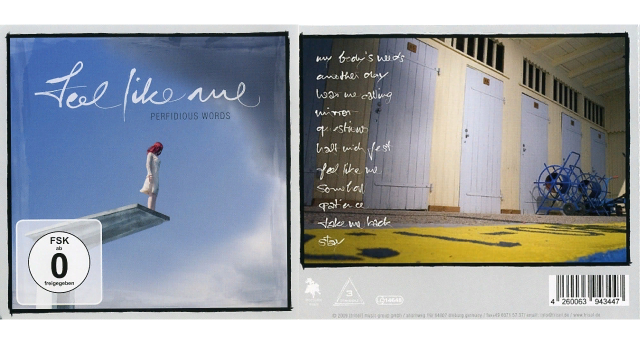 feel like me
PERFIDIOUS WORDS
FSK
ab
0
freigegeben
my body's needs
another day
hear me calling
mirror
questions
halt mich fest
feel like me
somebody
patience
take me back
stay
4 260063 943447